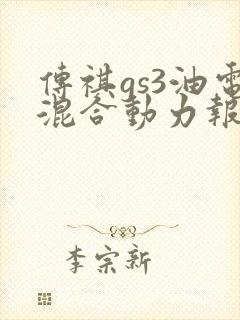 傳祺gs3油電
混合動力報
李宗新